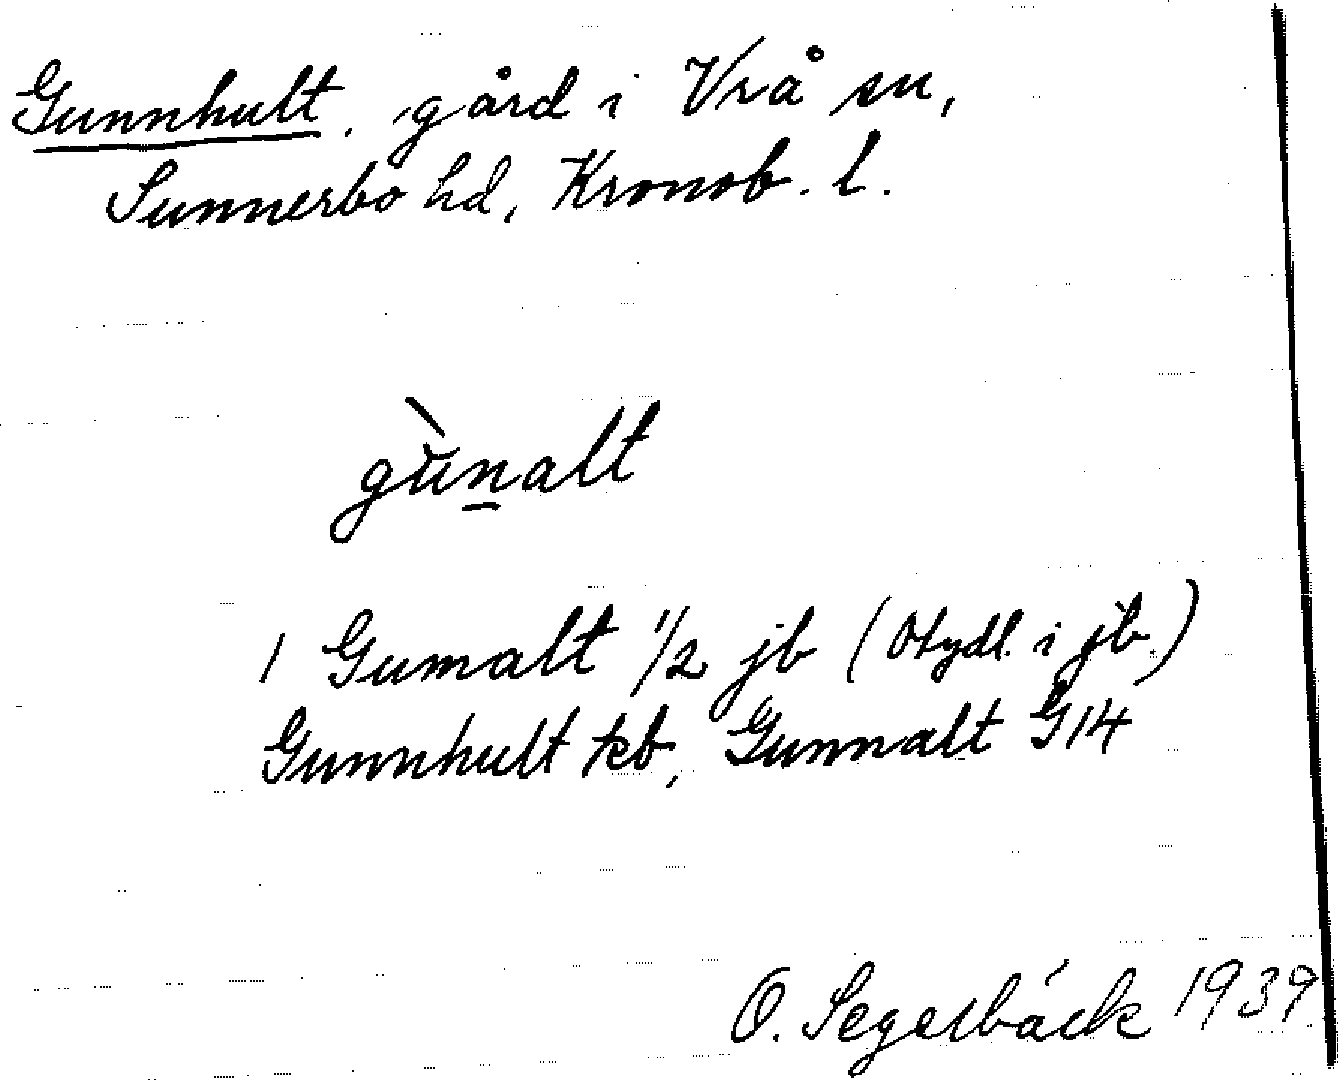 Gunnhult, gård i Vrå sn,
Sunnerbo hd, Kronob. l.
gùnalt
1 Gumalt 1/2 jb (Otydl. i jb.)
Gunnhult kb, Gunnalt G14
O. Segerbäck 1939